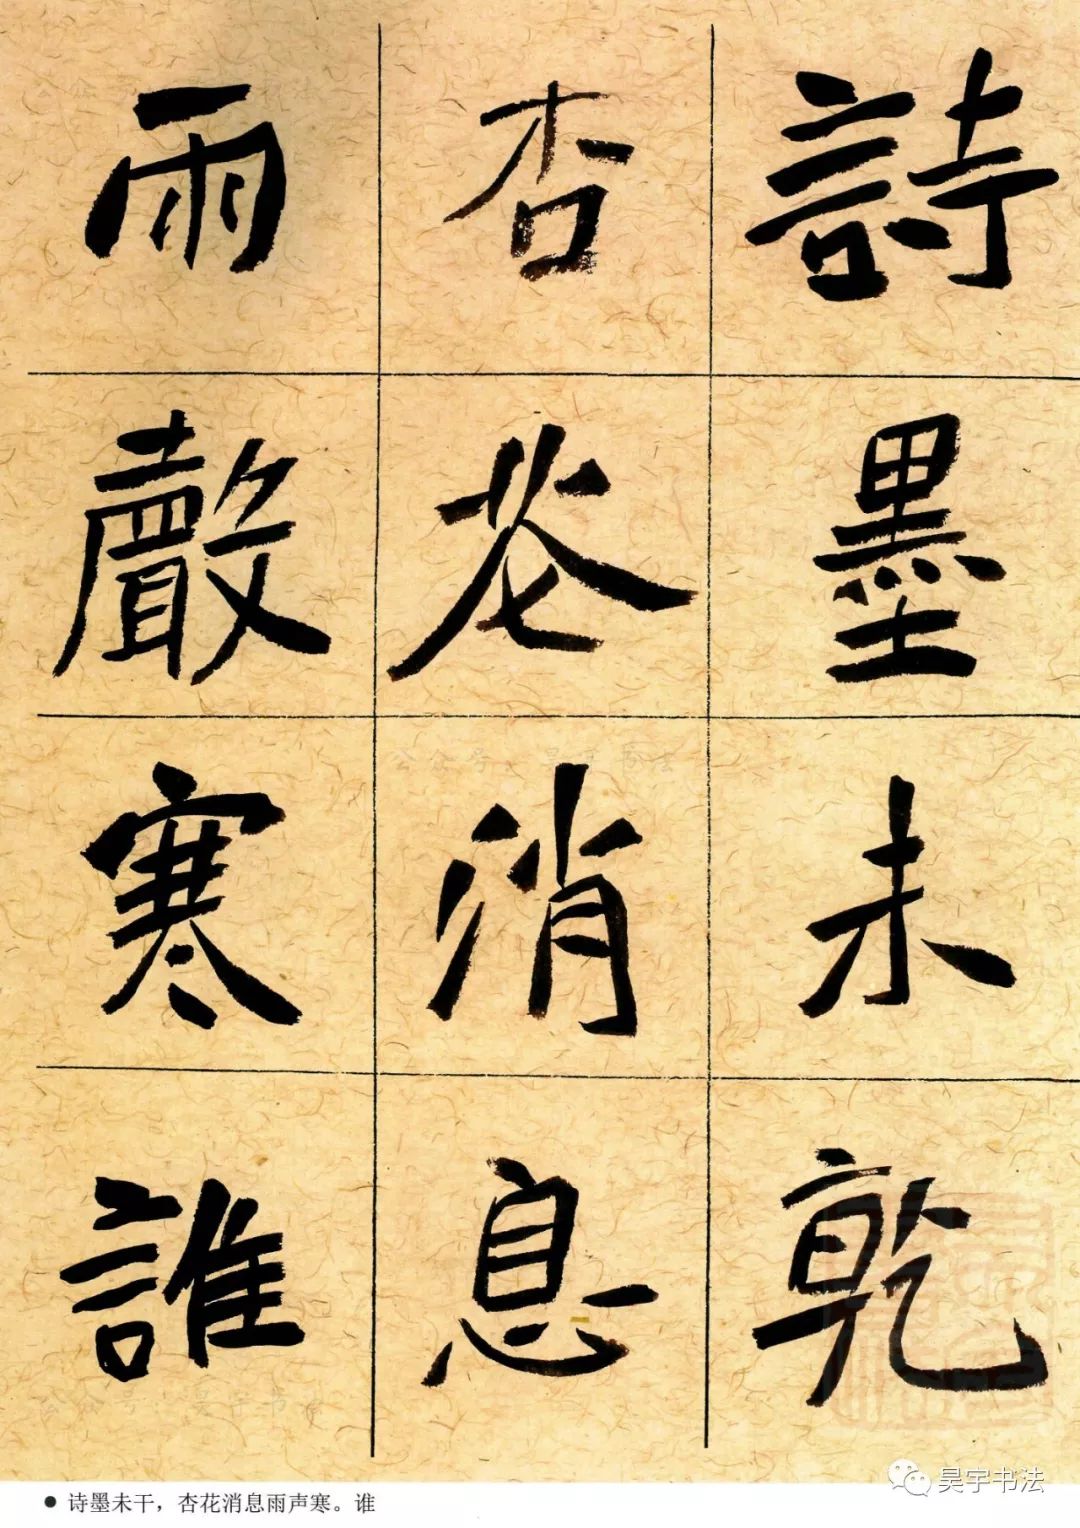 詩墨未乾
杏花消息
雨聲寒誰
● 诗墨未干，杏花消息雨声寒。谁
昊宇书法